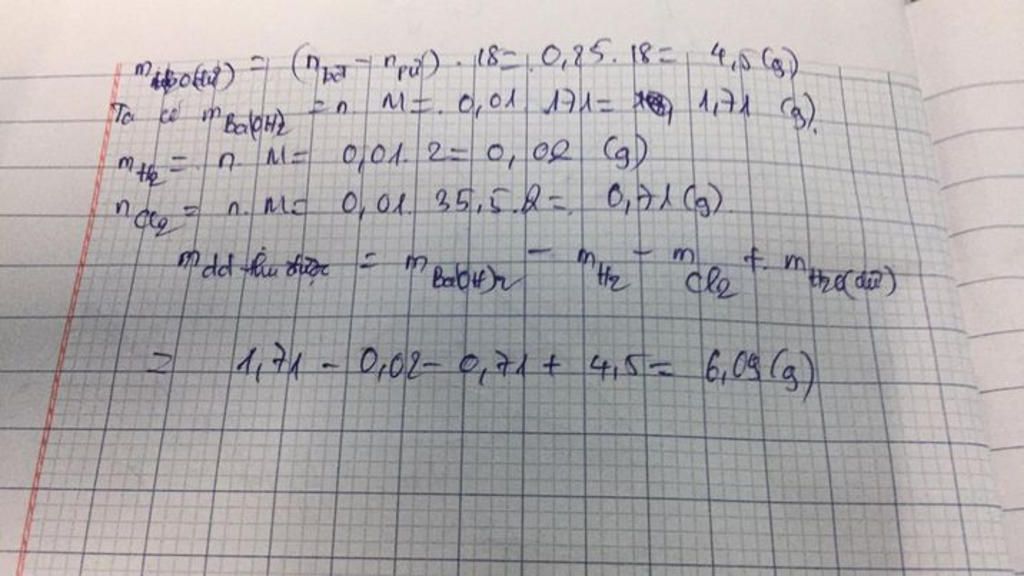 mH2O(dư) = (nbđ - npư) . 18 = 0,25. 18 = 4,5 (g)
Ta có mBa(OH)2 = n. M = 0,01 171 = 1,71 (g).
mH2 = n. M = 0,01. 2 = 0,02 (g)
nCl2 = n. M = 0,01. 35,5.2 = 0,71 (g)
mdd thu được = mBa(OH)2 - mH2 - mCl2 + mH2O(dư)
= 1,71 - 0,02 - 0,71 + 4,5 = 6,09 (g)